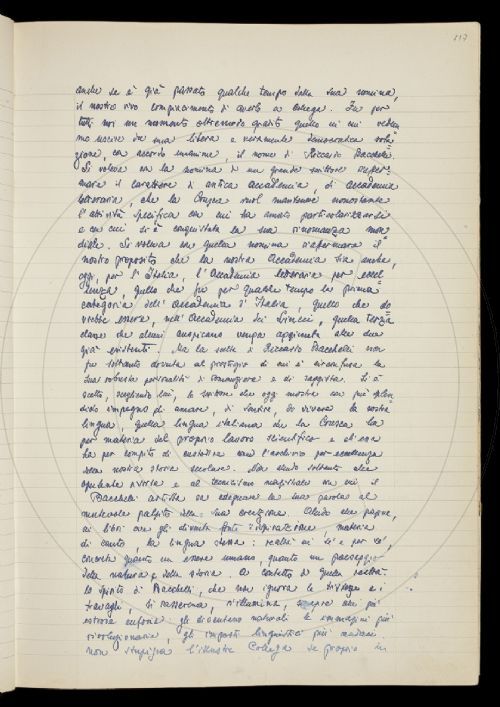 117
anche se è già passato qualche tempo dalla sua nomina,
il nostro vivo compiacimento di averlo a collega. Fu per
tutti noi un momento oltremodo gradito quello in cui vedem-
mo uscire da una libera e veramente democratica vota-
zione, con accordo unanime, il nome di Riccardo Bacchelli.
Si voleva con la nomina di un grande scrittore riaffer-
mare il carattere di antica accademia, di accademia
letteraria, che la Crusca vuol mantenere nonostante
l'attività specifica con cui ha
e con cui si è conquistata la sua rinomanza mon-
diale. Si voleva con quella nomina riaffermare il
nostro proposito che la nostra Accademia sia anche,
oggi, per l'Italia, l'Accademia letteraria per eccel-
lenza, quello che fu per qualche tempo la prima
categoria dell'Accademia d'Italia, quello che do-
vrebbe essere, nell'Accademia dei Lincei, quella terza
classe che alcuni auspicano venga aggiunta alle due
già esistenti. Ma la scelta di Riccardo Bacchelli non
fu soltanto dovuta al prestigio di cui è circonfusa la
sua robusta personalità di romanziere e di saggista. Si è
scelto, scegliendo lui, lo scrittore che oggi mostra con più splen-
dido impegno di amare, di sentire, di vivere la nostra
lingua, quella lingua italiana che la Crusca ha
per materia del proprio lavoro scientifico e di cui
ha per compito di custodire con l'archivio per eccellenza
della nostra storia secolare. Non alludo soltanto alla
opulenta ricchezza e al tecnicismo magistrale con cui il
Bacchelli artista sa adeguare la sua parola al
mutevole palpito della sua creazione. Alludo alle pagine,
ai libri ove gli diventa fonte ispirazione, materia
di canto, la lingua stessa: realtà in sé e per sé,
concreta quanto un essere umano, quanto un paesaggio
della natura e della storia. A contatto di quella realtà
lo spirito di Bacchelli, che non ignora le
travagli, si rasserena, s'illumina,
euforia: gli diventano naturali le immagini più
rivoluzionarie, gli impasti linguistici più
non stupisca l'illustre Collega se proprio in